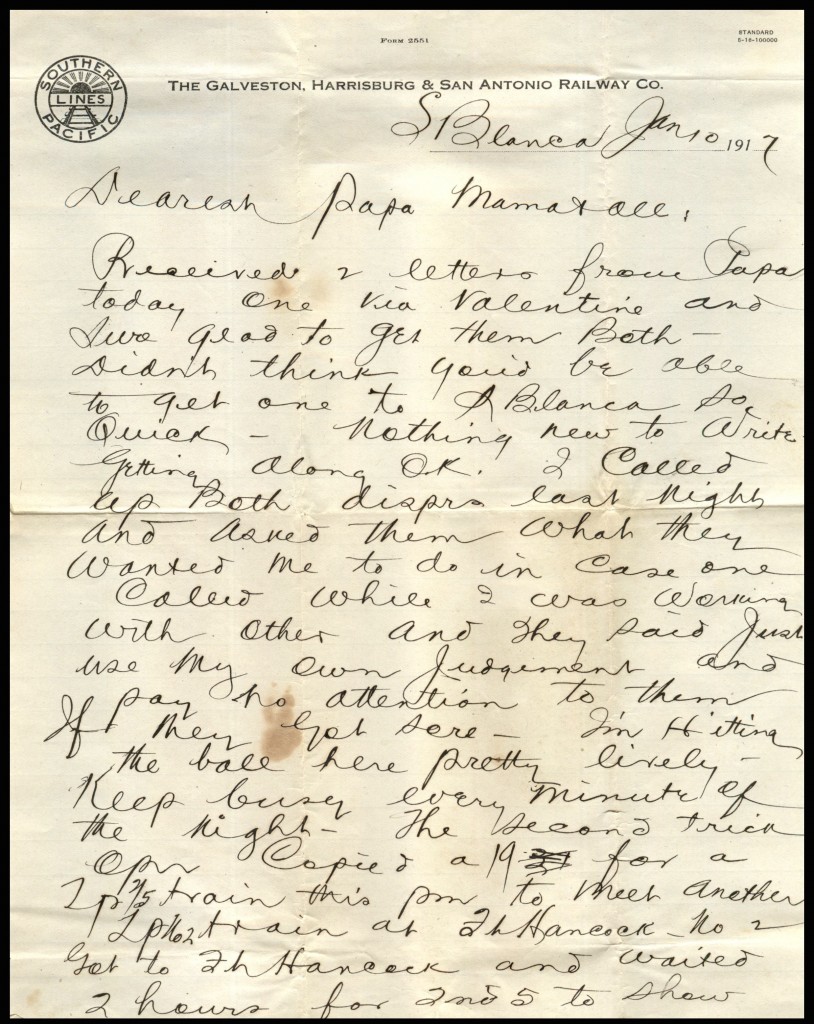 FORM 2551
STANDARD
5-16-100000
SOUTHERN
LINES
PACIFIC
THE GALVESTON, HARRISBURG & SAN ANTONIO RAILWAY CO.
S Blanca Jan 10 1917
Dearest Papa Mama & all:
Received 2 letters from Papa
today one via Valentine and
Sure glad to get them Both –
Didn't think you'd be able
to get one to S Blanca so
Quick – Nothing new to write
Getting along O.K. I Called
up Both disprs last Night
And Asked them What they
Wanted Me to do in Case one
Called While I was Working
With Other And They said Just
use My own Judgement and
pay no attention to them
If they Got sore – I'm Hitting
the ball here pretty lively –
Keep busy every Minute of
the Night – The second trick
Opr Copied a 19 for a
train this pm to Meet Another
train at Ft Hancock – No 2
Got to Ft Hancock and waited
2 hours for 2nd 5 to show